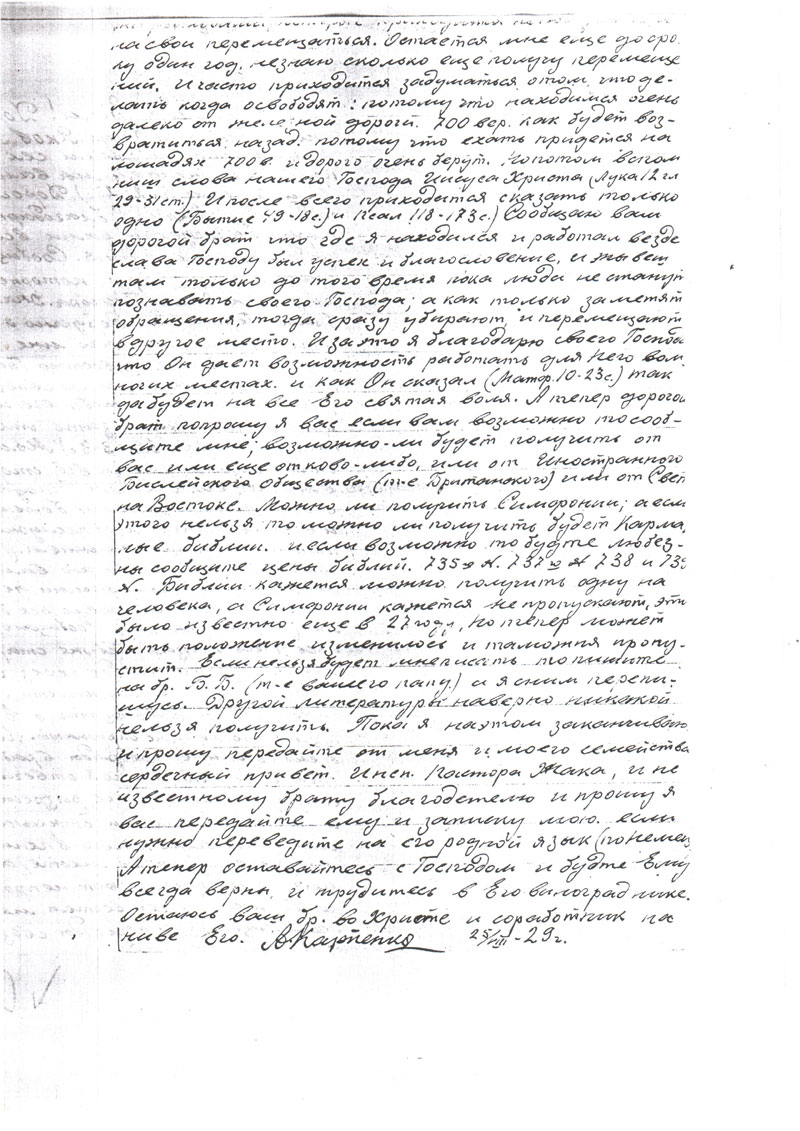 на свои перемещаться. Остается мне еще до сро-
ку один год. незнаю сколько еще получу перемеще
ний. И часто приходится задуматься о том, что де-
лать когда освободят: потому что находимся очень
далеко от желе ной дороги. 700 вер. как будет воз-
вратиться назад. потому что ехать придется на
лошадях 700 в. и дорого очень берут. Но потом вспом
ниш слова нашего Господа Иисуса Христа (Лука 12 гл
29-31 ст.) И после всего приходится сказать только
одно (Бытие 49-18 с.) и Псал 118-173 с.) Сообщаю вам
дорогой брат что где я находился и работал везде
слава Господу был успех и благословение, и живеш
там только до того время пока люди не станут
познавать своего Господа; а как только заметят
обращения, тогда сразу убирают, и перемещают
в другое место. И за это я благодарю своего Господа
что Он дает возможность работать для Него во м
ногих местах. и как Он сказал (Матф. 10-23 с.) так
да будет на все Его святая воля. А тепер дорогой
брат попрошу я вас если вам возможно то сооб-
щите мне; возможно-ли будет получить от
вас или еще от ково-либо, или от Иностранного
Библейского общества (т-е Британского) или от Свет
на Востоке. Можно ли получить Симфонии; а если
этого нельзя то можно ли получить будет Карма
ные библии. и если возможно то будте любез-
ны сообщите цены библий. 735 N. 737 N 738 и 739
N. Библии кажется можно получить одну на
человека, а Симфонии кажется не пропускают, это
было известно еще в 27 году, но тепер может
быть положение изменилось и таможня пропу-
стит. Если нельзя будет мне писать то пишите
на бр. Б.Б. (т-е вашего папу.) и я с ним перепи-
шусь. Другой литературы наверно никакой
нельзя получить. Пока я на этом заканчиваю
и прошу передайте от меня и моего семейства
сердечный привет. Инсп. Пастора Жака, и не
известному брату благодетелю и прошу я
вас передайте ему и записку мою. если
нужно переведите на его родной язык (по немец
А тепер оставайтесь с Господом и будте Ему
всегда верны и трудитесь в Его винограднике.
Остаюсь ваш бр. во Христе и соработник на
ниве Его. А Карпенко 25/VIII-29 г.